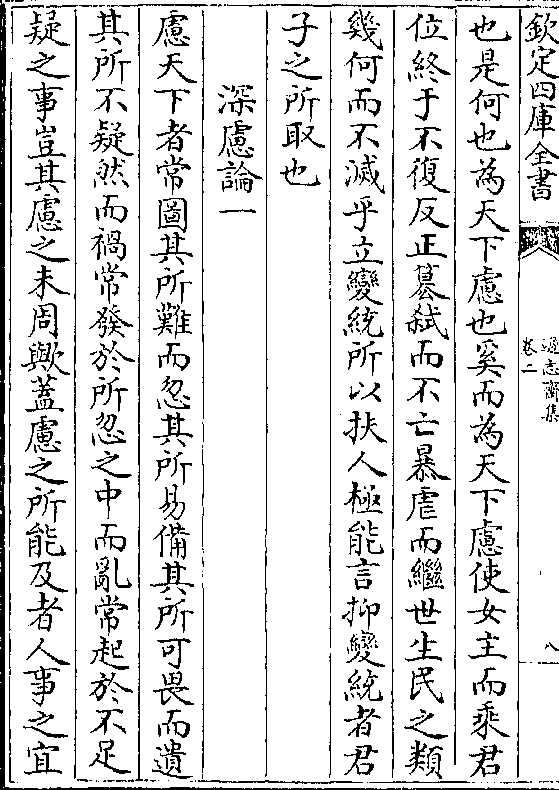 欽定四庫全書
遜志齋集
卷二
八
也是何也為天下慮也奚而為天下慮使女主而乘君
位終于不復反正簒弑而不亡暴虐而繼世生民之類
幾何而不滅乎立變統所以扶人極能言抑變統者君
子之所取也
深慮論一
慮天下者常圖其所難而忽其所易備其所可畏而遺
其所不疑然而禍常發於所忽之中而亂常起於不足
疑之事豈其慮之未周歟葢慮之所能及者人事之宜